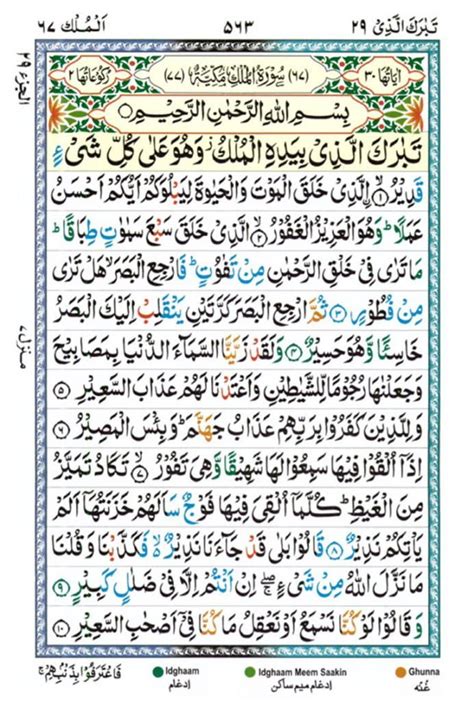 تَبٰرَكَ الَّذِیْ ٢٩ ٥٦٣ اَلْمُلْك ٦٧
اٰيَاتُهَا ٣٠ (٦٧) سُوْرَةُ الْمُلْكِ مَكِّيَّةٌ (٧٧) رُكُوْعَاتُهَا ٢
بِسْمِ اللّٰهِ الرَّحْمٰنِ الرَّحِيْمِ
تَبٰرَكَ الَّذِیْ بِيَدِهِ الْمُلْكُ ز وَهُوَ عَلٰی كُلِّ شَیْءٍ
قَدِيْرُ ۙ﴿١﴾ اِۨلَّذِیْ خَلَقَ الْمَوْتَ وَالْحَيٰوةَ لِيَبْلُوَكُمْ اَيُّكُمْ اَحْسَنُ
عَمَلًا ؕ وَهُوَ الْعَزِيْزُ الْغَفُوْرُ ۙ﴿٢﴾ الَّذِیْ خَلَقَ سَبْعَ سَمٰوٰتٍ طِبَاقًا ؕ
مَا تَرٰی فِیْ خَلْقِ الرَّحْمٰنِ مِنْ تَفٰوُتٍ ؕ فَارْجِعِ الْبَصَرَ ۙ هَلْ تَرٰی
مِنْ فُطُوْرٍ ﴿٣﴾ ثُمَّ ارْجِعِ الْبَصَرَ كَرَّتَيْنِ يَنْقَلِبْ اِلَيْكَ الْبَصَرُ
خَاسِئًا وَّهُوَ حَسِيْرٌ ﴿٤﴾ وَلَقَدْ زَيَّنَّا السَّمَآءَ الدُّنْيَا بِمَصَابِيْحَ
وَجَعَلْنٰهَا رُجُوْمًا لِّلشَّيٰطِيْنِ وَاَعْتَدْنَا لَهُمْ عَذَابَ السَّعِيْرِ ﴿٥﴾
وَلِلَّذِيْنَ كَفَرُوْا بِرَبِّهِمْ عَذَابُ جَهَنَّمَ ؕ وَبِئْسَ الْمَصِيْرُ ﴿٦﴾
اِذَاۤ اُلْقُوْا فِيْهَا سَمِعُوْا لَهَا شَهِيْقًا وَّهِیَ تَفُوْرُ ۙ﴿٧﴾ تَكَادُ تَمَيَّزُ
مِنَ الْغَيْظِ ؕ كُلَّمَاۤ اُلْقِیَ فِيْهَا فَوْجٌ سَاَلَهُمْ خَزَنَتُهَاۤ اَلَمْ
يَاْتِكُمْ نَذِيْرٌ ﴿٨﴾ قَالُوْا بَلٰی قَدْ جَآءَنَا نَذِيْرٌ ۙ فَكَذَّبْنَا وَقُلْنَا
مَا نَزَّلَ اللّٰهُ مِنْ شَیْءٍ ۖۚ اِنْ اَنْتُمْ اِلَّا فِیْ ضَلٰلٍ كَبِيْرٍ ﴿٩﴾
وَقَالُوْا لَوْ كُنَّا نَسْمَعُ اَوْ نَعْقِلُ مَا كُنَّا فِیْۤ اَصْحٰبِ السَّعِيْرِ ﴿١٠﴾
فَاعْتَرَفُوْا بِذَنْۢبِهِمْ ۚ
الجزء ٢٩
منزل ٧
Idghaam Idghaam Meem Saakin Ghunna
اِدغَام اِدغَام میم ساکن غُنّه